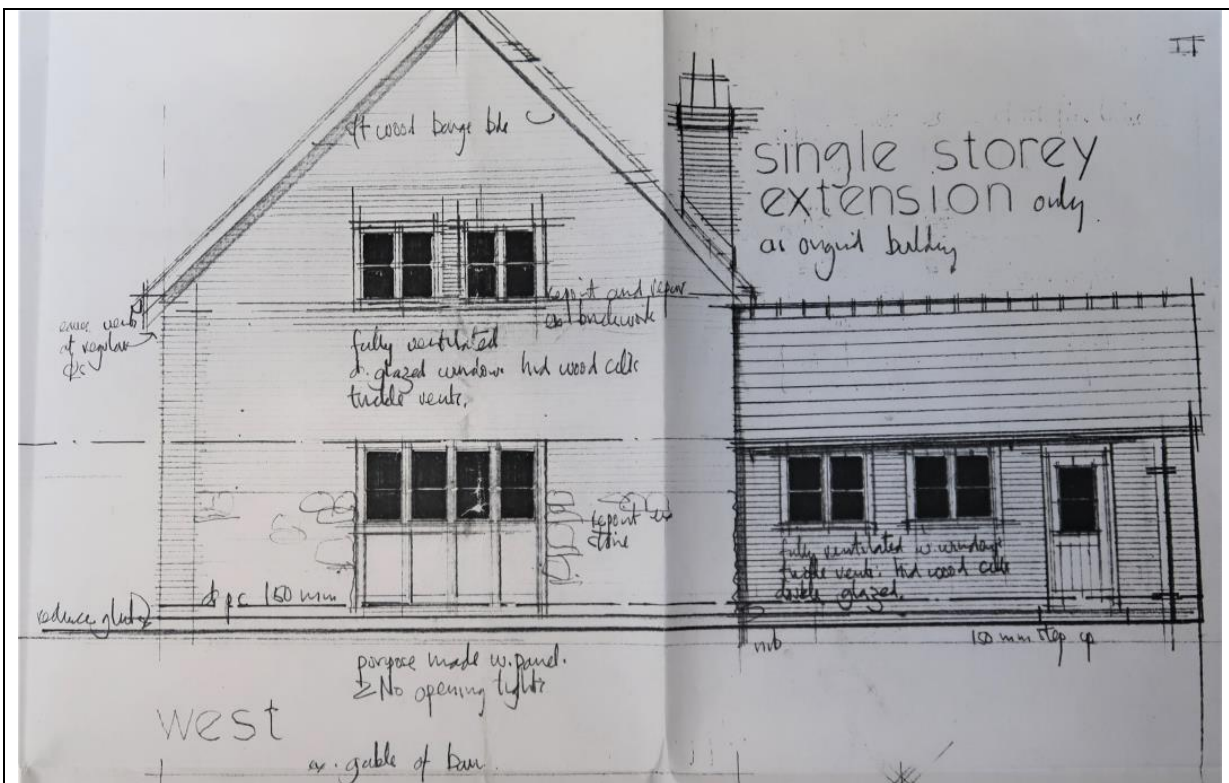 s/t wood barge bds
single storey
extension only
as original building
repoint and repair
ex. brickwork
eaves vents
at regular
c/cs
fully ventilated
d. glazed windows hd wood cills
trickle vents.
repoint ex
stone
fully ventilated w. windows
trickle vents. hd wood cills
double glazed.
dpc 150 mm
reduce gld
nib
150 mm step up
purpose made w. panel.
2 No opening lights
west
ex. gable of barn